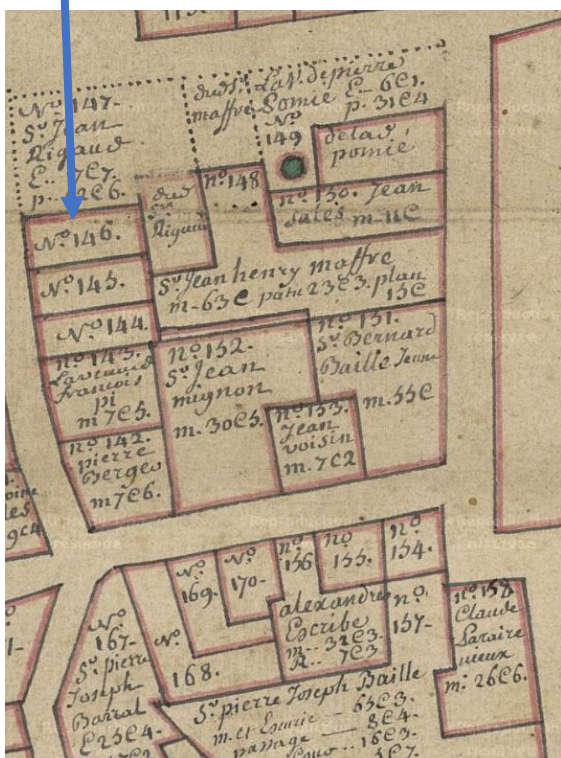 No 147-
Sr Jean
Rigaud
E.. 7C7.
p... 2C6.
dud Sr
maffre
La V. de pierre
Pomie E- 6C1.
p. 31C4
No
149
delad
pomié
no 148
dud
Sr
Rigaud
no 150. Jean
sales m-11C
No 146.
No 145.
No 144.
Sr Jean henry maffre
m-63C patu 23C3. plan
15C
no 143.
francois
pi
m 7C5.
no 142.
pierre
Berges
m 7C6.
no 152.
Sr Jean
mignon
m. 30C5.
no 151.
Sr Bernard
Baille Jeune
m. 55C
no 153.
Jean
voisin
m. 7C2
9C4
No
169.
No
170-
no
156
no
155.
no
154.
alexandre
Escribe
m-- 32C3.
R.. 7C3
no.
157-
no 158.
Claude
Laraire
vieux
m. 26C6.
No
167-
Sr pierre
Joseph
Barral
C25C4.
No.
168.
Sr pierre Joseph Baille
m. et Ecurie - 65C3.
passage - 8C4.
16C3.